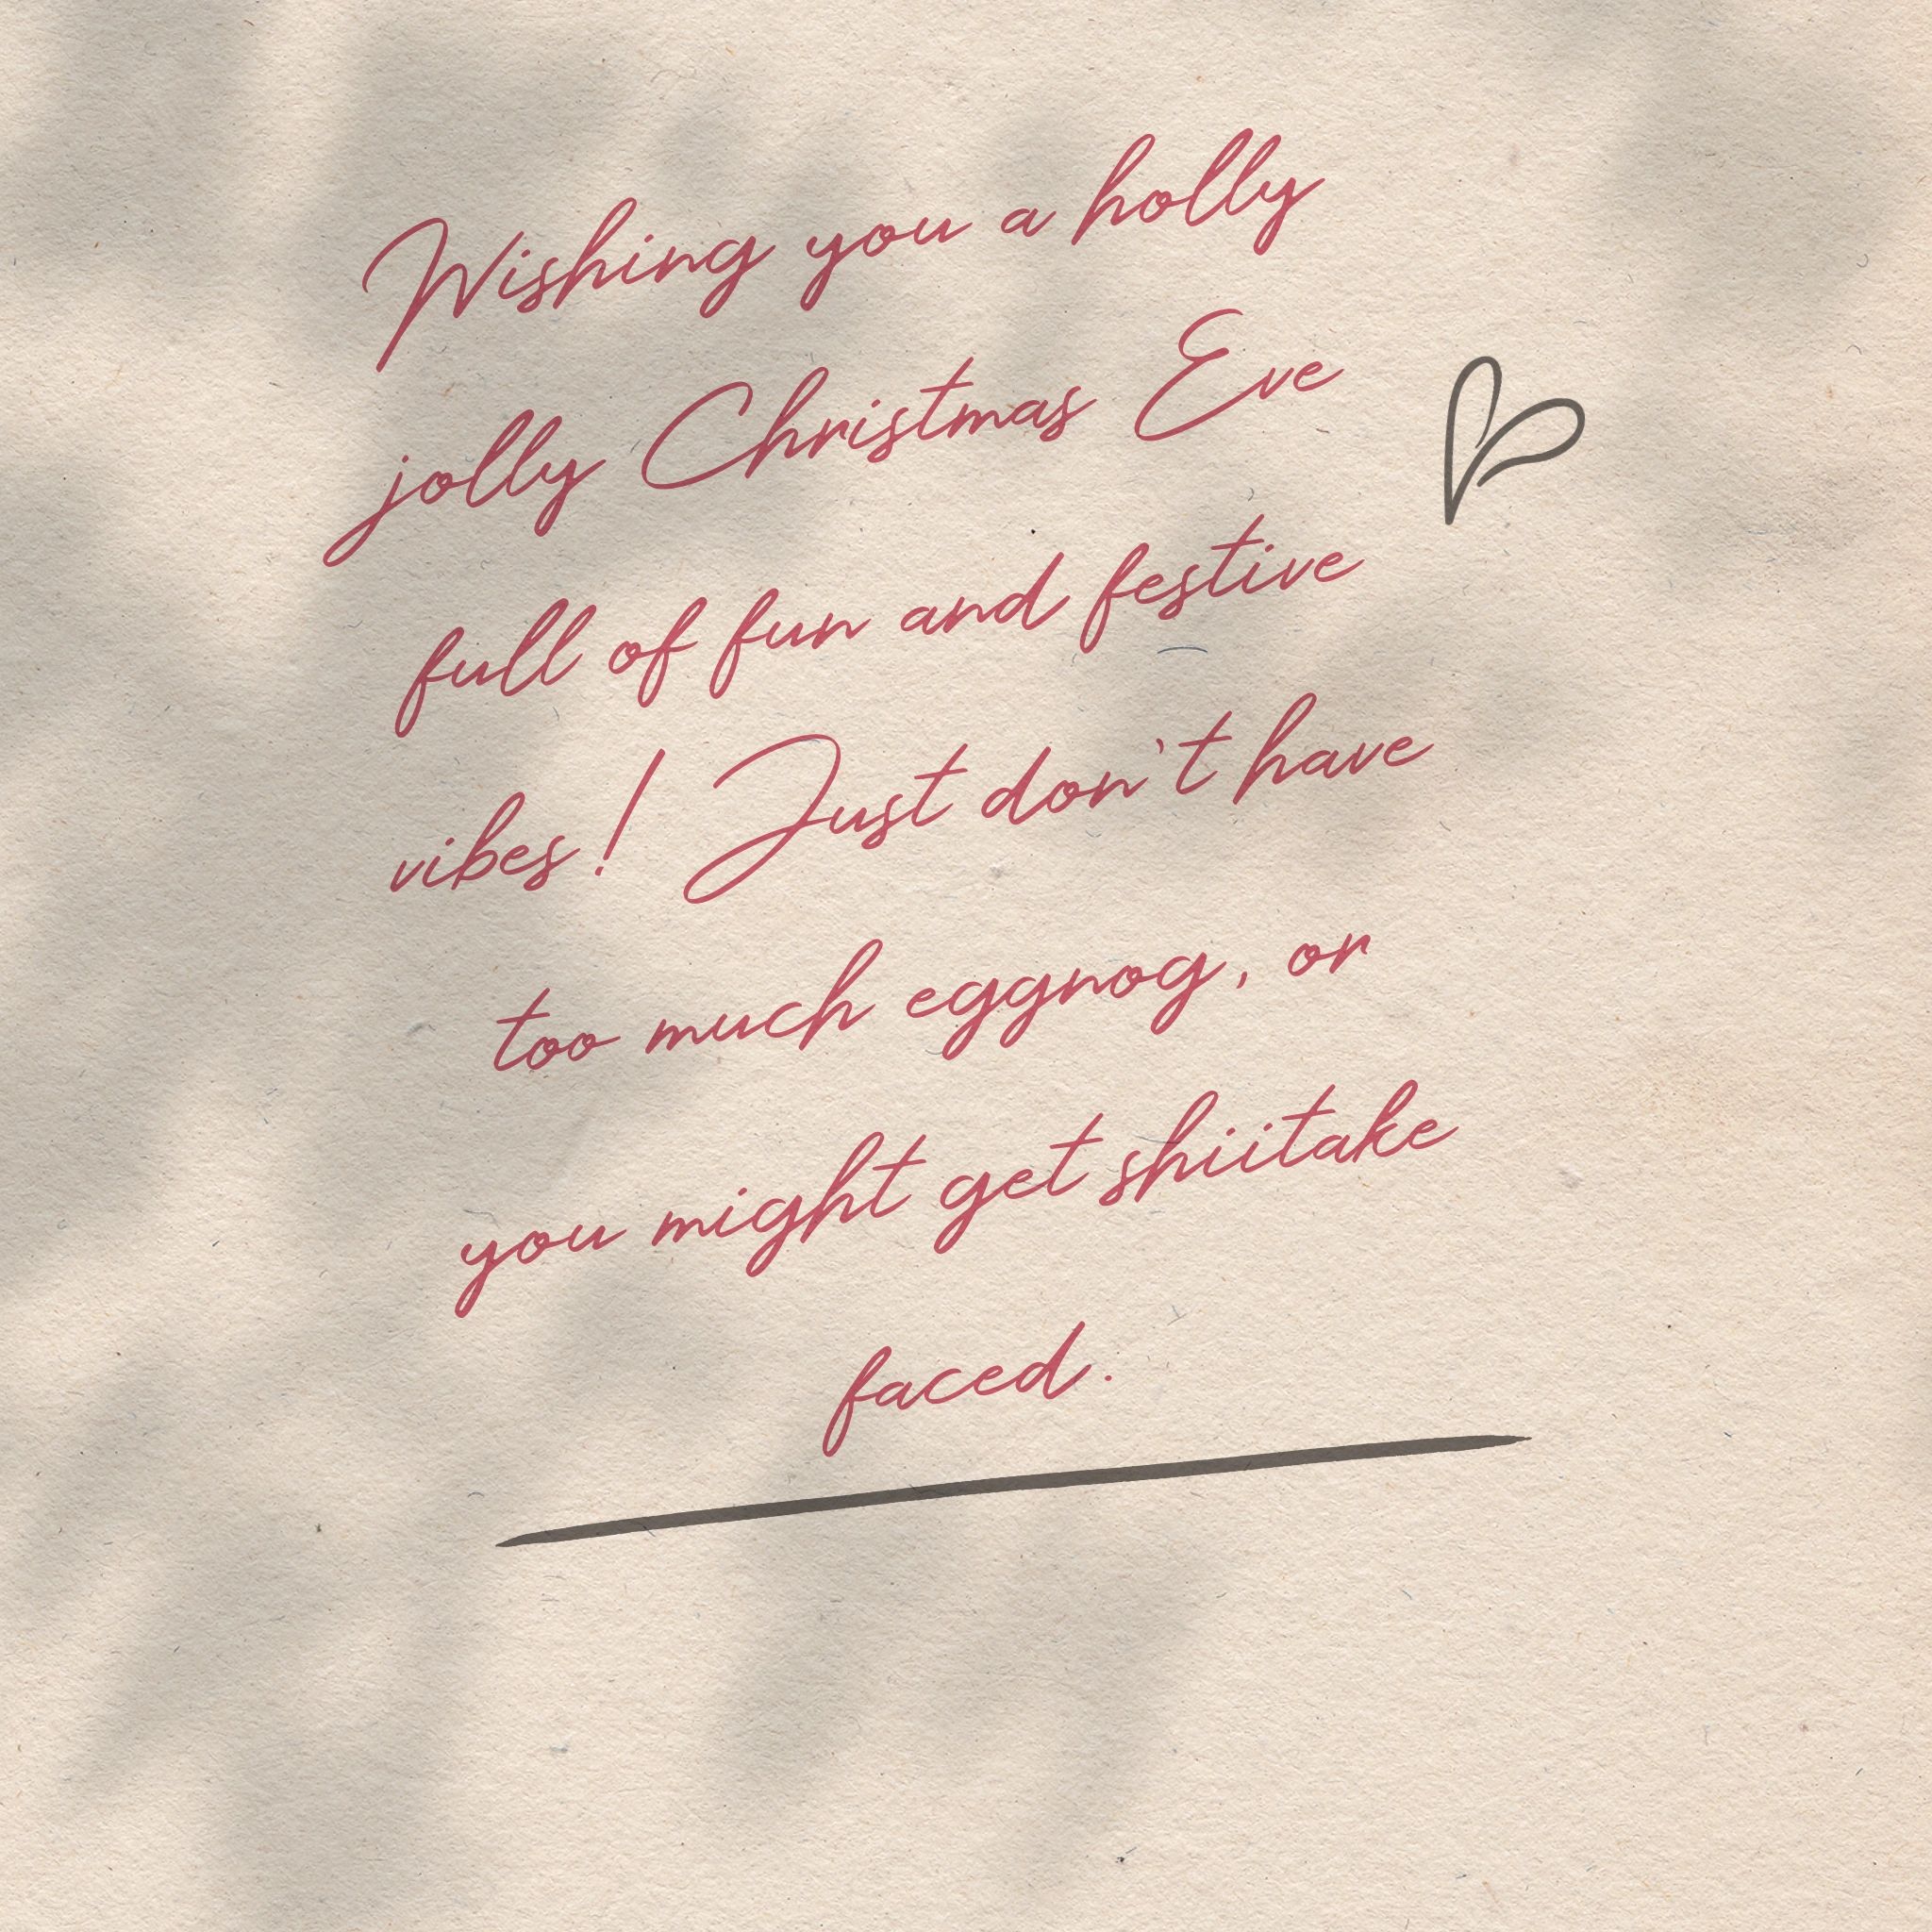 Wishing you a holly
jolly Christmas Eve
full of fun and festive
vibes! Just don't have
too much eggnog, or
you might get shiitake
faced.